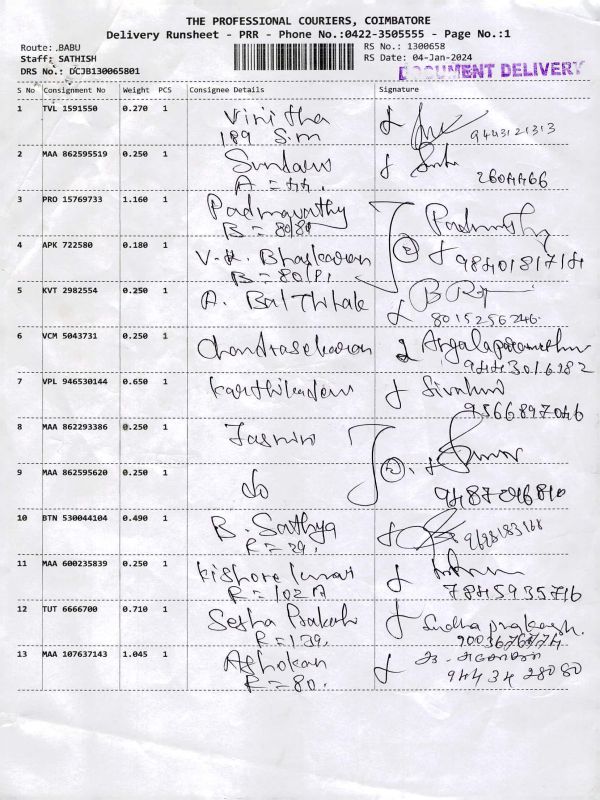 THE PROFESSIONAL COURIERS, COIMBATORE
Delivery Runsheet - PRR - Phone No.:0422-3505555 - Page No.:1
Route: .BABU
Staff: SATHISH
DRS No.: DCJB130065801
RS No.: 1300658
RS Date: 04-Jan-2024
DOCUMENT DELIVERY
S No Consignment No Weight PCS Consignee Details Signature
1 TVL 1591550 0.270 1 Vinitha
189 S.m 9443121313
2 MAA 862595519 0.250 1
A = 44. 2604466
3 PRO 15769733 1.160 1 Padmavathy
B = 80/80
4 APK 722580 0.180 1 V.K. Bhaskaran
B = 80/P1 9840181714
5 KVT 2982554 0.250 1 A. Bal Thilak
8015256246.
6 VCM 5043731 0.250 1 Chandrasekaran Angalaparameshwari
9443016282
7 VPL 946530144 0.650 1 Karthikadevi
9566897046
8 MAA 862293386 0.250 1 Jasmin
9 MAA 862595620 0.250 1 do 9487046810
10 BTN 530044104 0.490 1 B. Sathya
R = 29. 9698183168
11 MAA 600235839 0.250 1 Kishore Kumar
R = 102 A 7845935716
12 TUT 6666700 0.710 1 Sesha Prakash Sudha prakash.
R = 139.
13 MAA 107637143 1.045 1 Ashokan
R = 80. 94434 28080